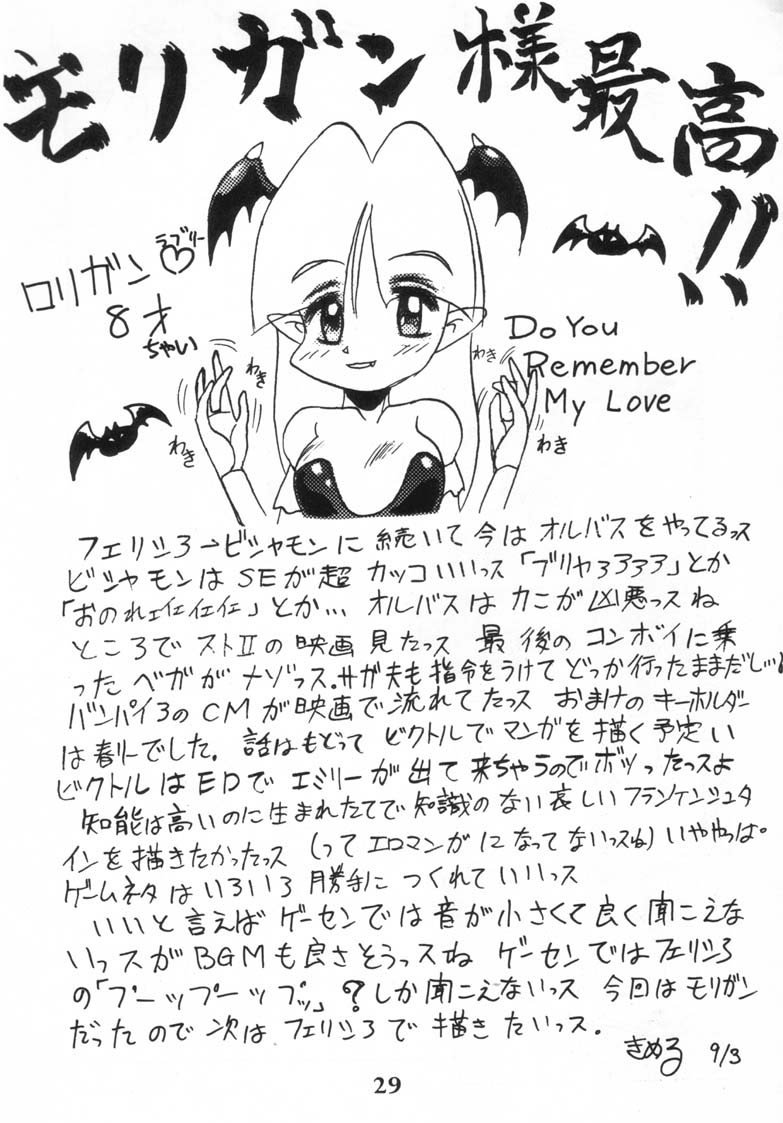 モリガン様最高!!
ロリガン♡
ラブリー
8才
ちゃい
わき
わき
わき
わき
Do You
Remember
My Love
フェリシろ→ビシャモンに続いて今はオルバスをやってるっス
ビシャモンはSEが超カッコいいっス「ブリャろろろろ」とか
「おのれェイイイイ」とか… オルバスはカニが凶悪っスね
ところでストⅡの映画見たっス 最後のコンボイに乗
ったベガがナゾっス。サガ夫も指令をうけてどっか行ったままだし…
バンパイろのCMが映画で流れてたっス おまけのキーホルダー
は春リーでした。話はもどってビクトルでマンガを描く予定い
ビクトルはEDでエミリーが出て来ちゃうのでボツったっスよ
知能は高いのに生まれたてで知識のない哀しいフランケンシュタ
インを描きたかったっス (ってエロマンガになってないっスね) いややっぱ。
ゲームネタはいろいろ勝手につくれていいっス
いいと言えばゲーセンでは音が小さくて良く聞こえな
いっスがBGMも良さそうっスね ゲーセンではフェリシろ
の「プーップーップッ」?しか聞こえないっス 今回はモリガン
だったので次はフェリシろで描きたいっス。
きめる 9/3
29